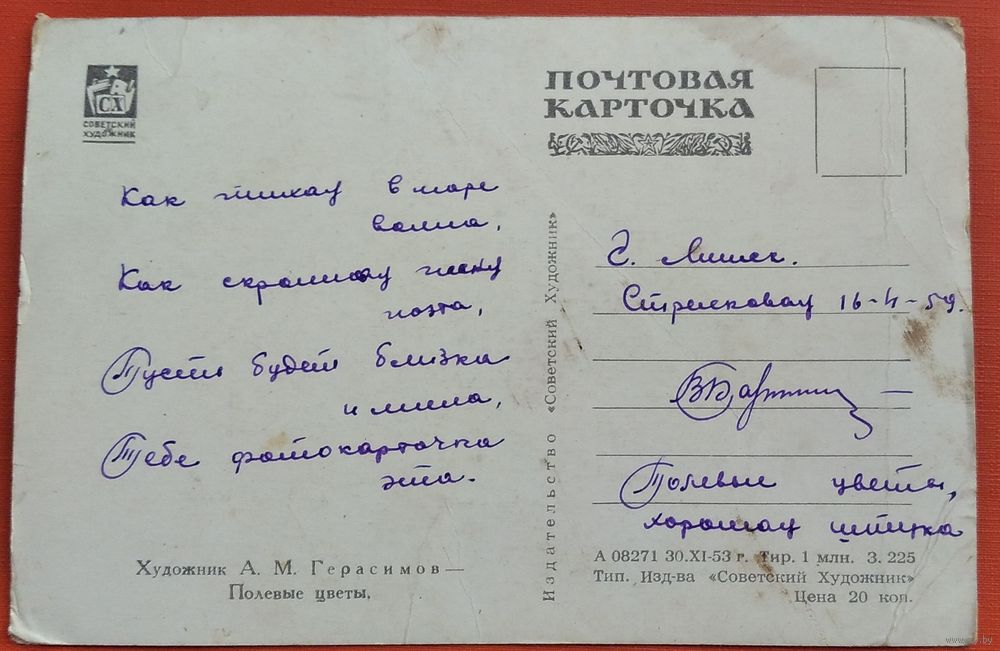 СХ
СОВЕТСКИЙ
ХУДОЖНИК
ПОЧТОВАЯ
КАРТОЧКА
Как тихая в море
волна,
Как скромная песня
поэта,
Пусть будет близка
и мила,
Тебе фотокарточка
эта.
Художник А. М. Герасимов—
Полевые цветы.
Издательство «Советский Художник»
г. Минск.
Стрелковая 16-4-59.
Полевые цветы,
хорошая штука
А 08271 30.XI-53 г. Тир. 1 млн. З. 225
Тип. Изд-ва «Советский Художник»
Цена 20 коп.